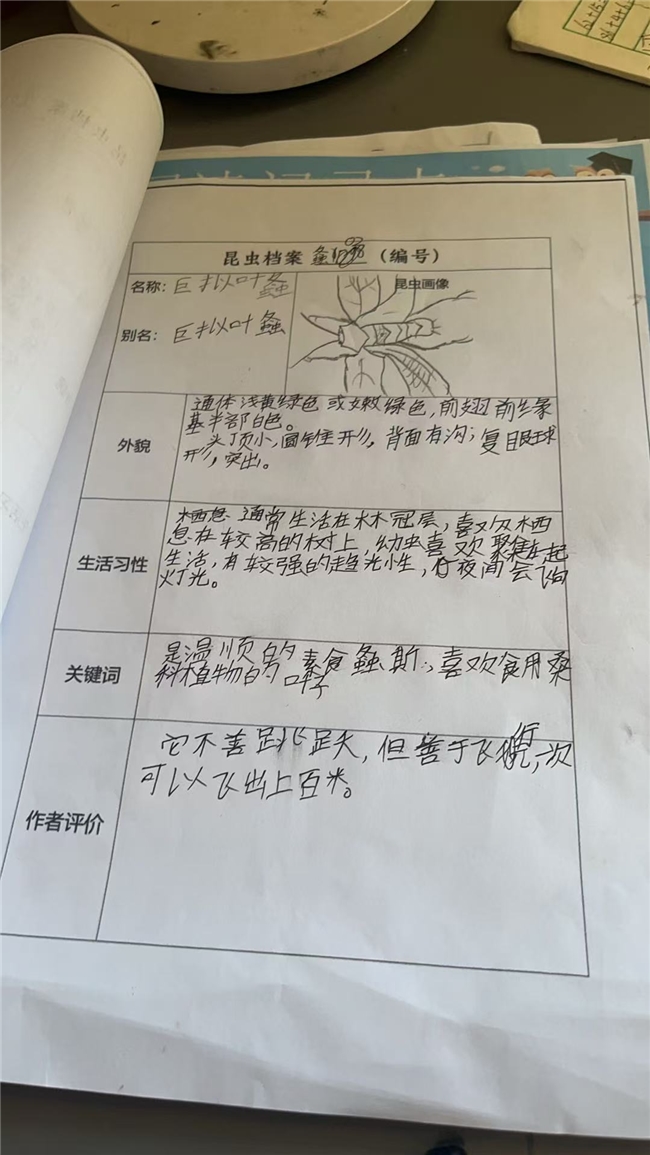 昆虫档案 （编号）
名称： 巨拟叶螽
昆虫画像
别名： 巨拟叶螽
外貌
通体浅黄绿色或嫩绿色，前翅前缘
基半部白色。
头顶小，圆锥形，背面有沟；复眼球
形，突出。
生活习性
栖息 通常生活在林冠层，喜欢栖
息在较高的树上，幼虫喜欢聚集在一起
生活，有较强的趋光性，在夜间会飞向
灯光。
关键词
是温顺的素食螽斯，喜欢食用桑
科植物的叶子
作者评价
它不善跳跃，但善于飞行，一次
可以飞出上百米。